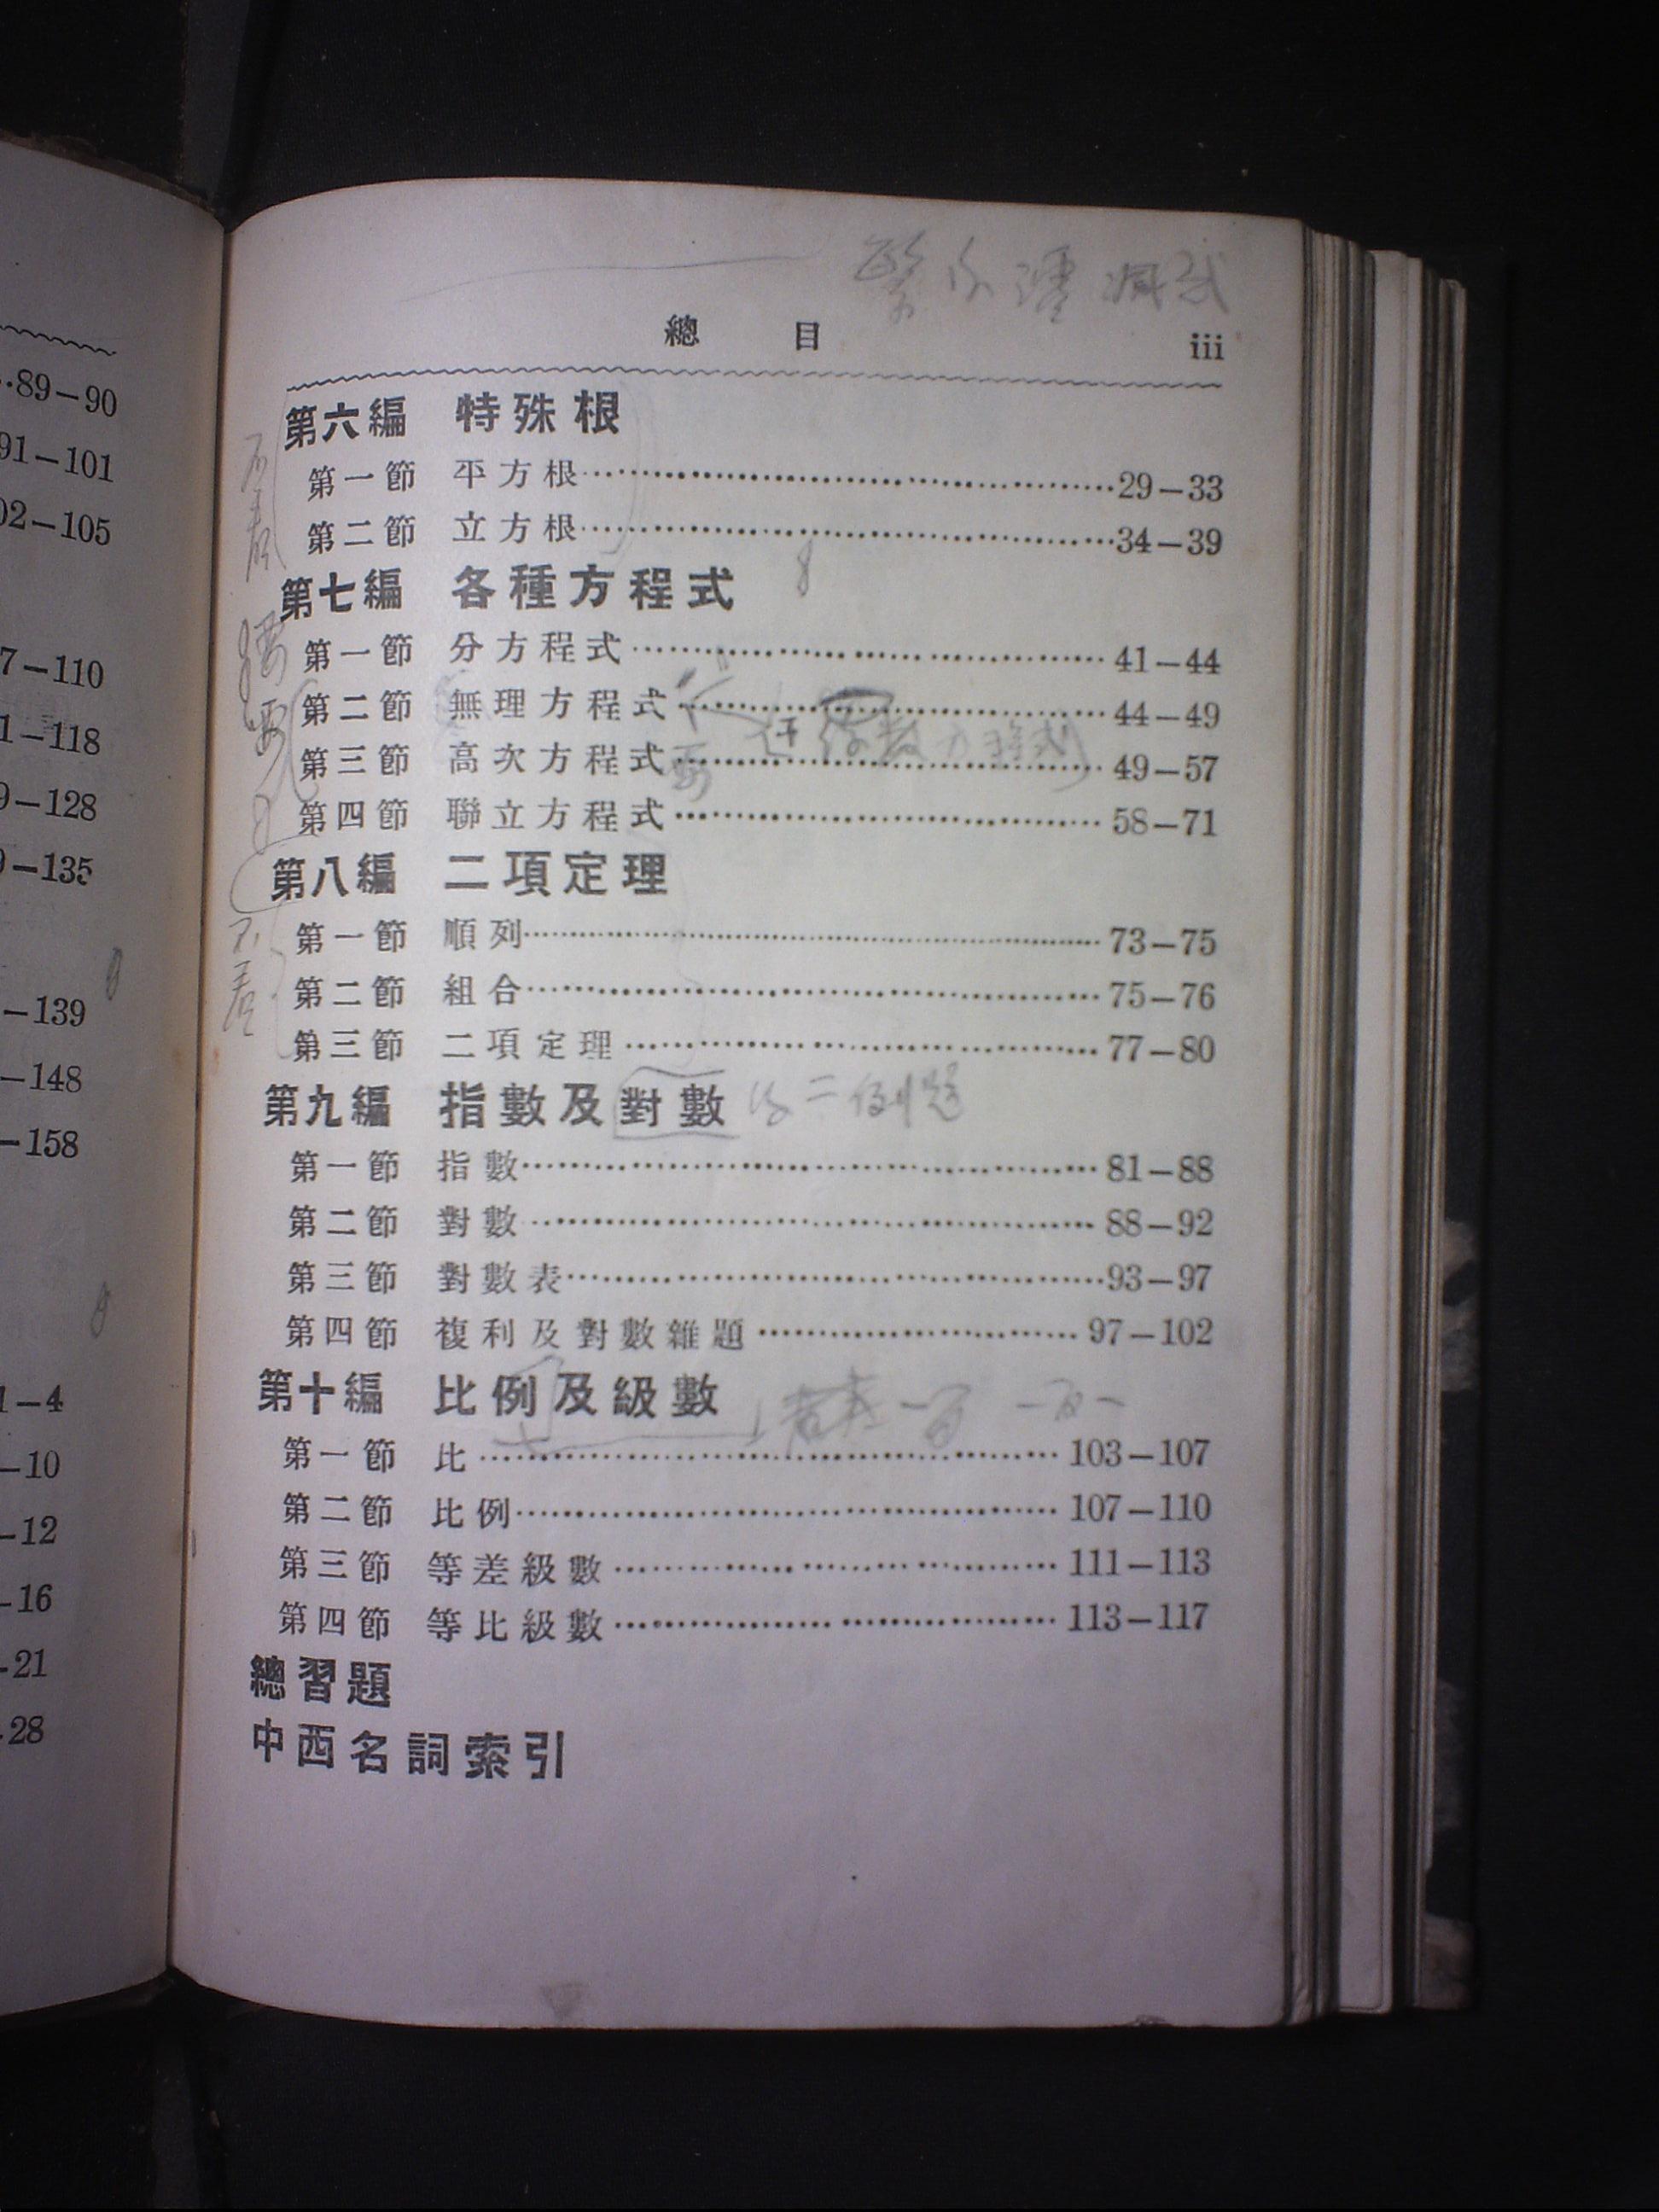 ··89—90
91—101
02—105
7—110
1—118
9—128
9—135
—139
—148
—158
1—4
—10
—12
—16
-21
28
總 目 iii
第六編 特殊根
第一節 平方根……29—33
第二節 立方根……34—39
第七編 各種方程式
第一節 分方程式……41—44
第二節 無理方程式……44—49
第三節 高次方程式……49—57
第四節 聯立方程式……58—71
第八編 二項定理
第一節 順列……73—75
第二節 組合……75—76
第三節 二項定理……77—80
第九編 指數及對數 二例題
第一節 指數……81—88
第二節 對數……88—92
第三節 對數表……93—97
第四節 複利及對數雜題……97—102
第十編 比例及級數
第一節 比……103—107
第二節 比例……107—110
第三節 等差級數……111—113
第四節 等比級數……113—117
總習題
中西名詞索引